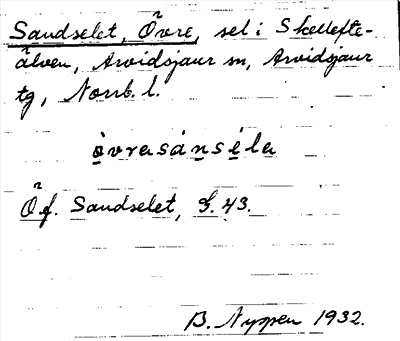 Sandselet, Övre, sel i Skellefte-
älven, Arvidsjaur sn, Arvidsjaur
tg, Norrb. l.
òvrasánséla
Öf. Sandselet, G. 43.
B. Nyppen 1932.